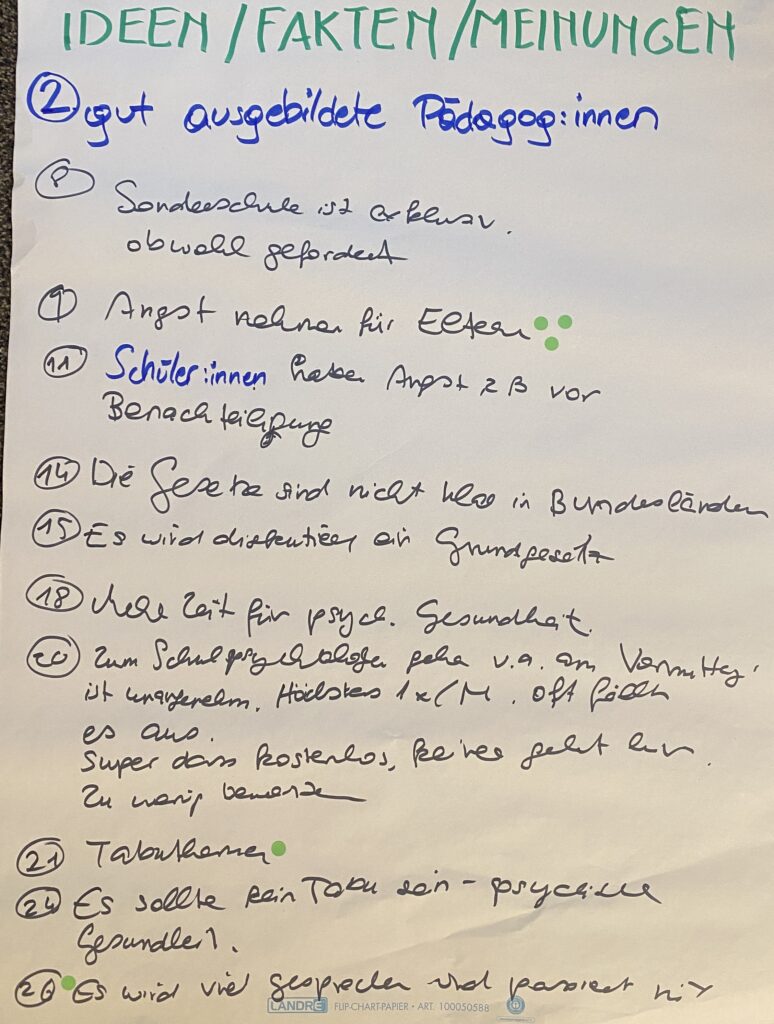 IDEEN / FAKTEN / MEINUNGEN
② gut ausgebildete Pädagog:innen
⑧ Sonderschule ist exklusiv.
obwohl gefordert
⑨ Angst nehmen für Eltern
⑪ Schüler:innen haben Angst z B vor
Benachteiligung
⑭ Die Gesetze sind nicht klar in Bundesländern
⑮ Es wird diskutiert ein Grundgesetz
⑱ Mehr Zeit für psych. Gesundheit.
⑳ Zum Schulpsychologen gehen v.a. am Vormittag,
ist unangenehm. Höchstens 1x/M. Oft fällt
es aus.
Super dass kostenlos, keiner geht hin.
Zu wenig
㉑ Tabuthemen
㉔ Es sollte kein Tabu sein - psychische
Gesundheit.
㉖ Es wird viel gesprochen und passiert nix
LANDRÉ FLIP-CHART-PAPIER • ART. 100050588